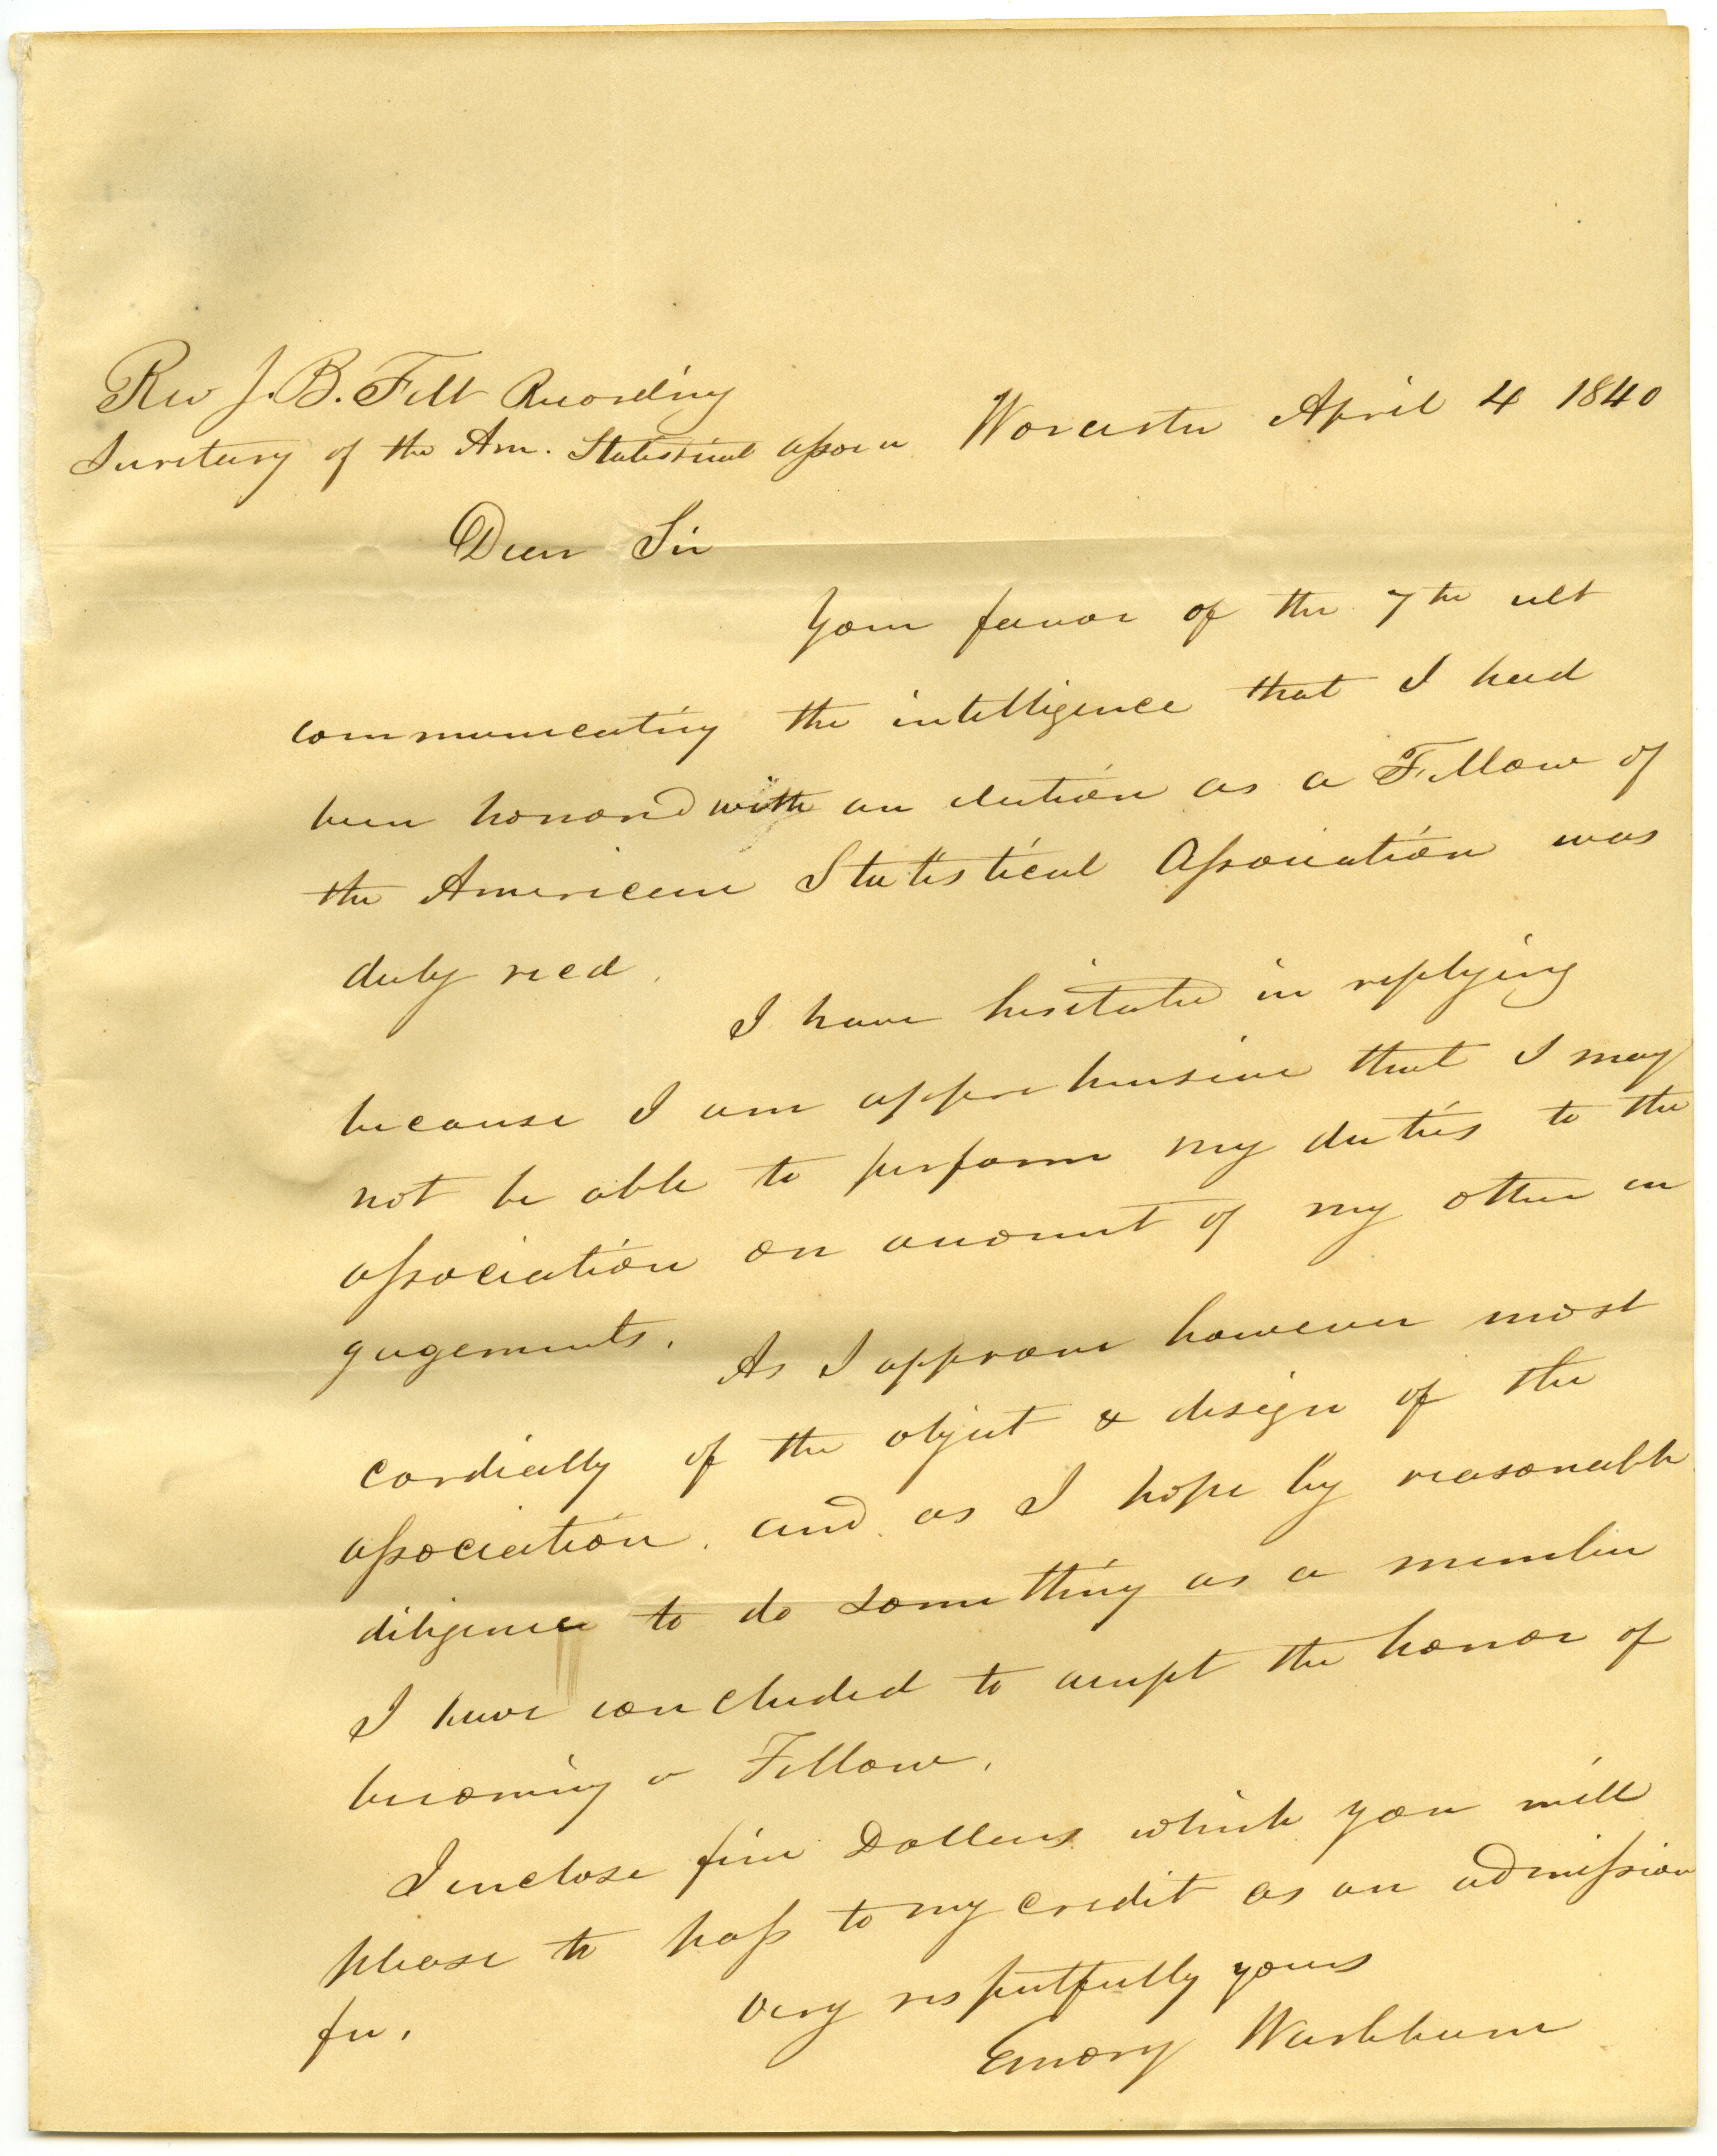 Rev J. B. Felt Recording
Secretary of the Am. Statistical Assocn
Worcester April 4 1840
Dear Sir
Your favor of the 7th ult
communicating the intelligence that I had
been honored with an election as a Fellow of
the American Statistical Association was
duly recd.
I have hesitated in replying
because I am apprehensive that I may
not be able to perform my duties to the
association on account of my other en
gagements. As I approve however most
cordially of the object & design of the
association, and as I hope by reasonable
diligence to do something as a member
I have concluded to accept the honor of
becoming a Fellow.
I enclose five Dollars which you will
please to pass to my credit as an admission
fee.
Very respectfully yours
Emory Washburn